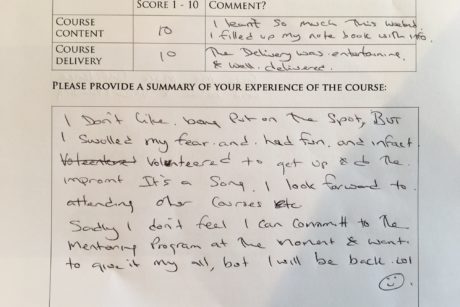 SCORE 1 - 10 COMMENT?
COURSE CONTENT 10 I learnt so much this weekend
I filled up my note book with info.
COURSE DELIVERY 10 The Delivery was entertaining
& well delivered.
PLEASE PROVIDE A SUMMARY OF YOUR EXPERIENCE OF THE COURSE:
I Don't like being Put on the Spot, BUT
I Swolled my fear and had fun and infact
Volunteered to get up & do the
impromt It's a Song. I look forward to
attending other Courses etc
Sadly I don't feel I can Committ to the
Mentoring Program at the moment & want
to give it my all, but I will be back. lol